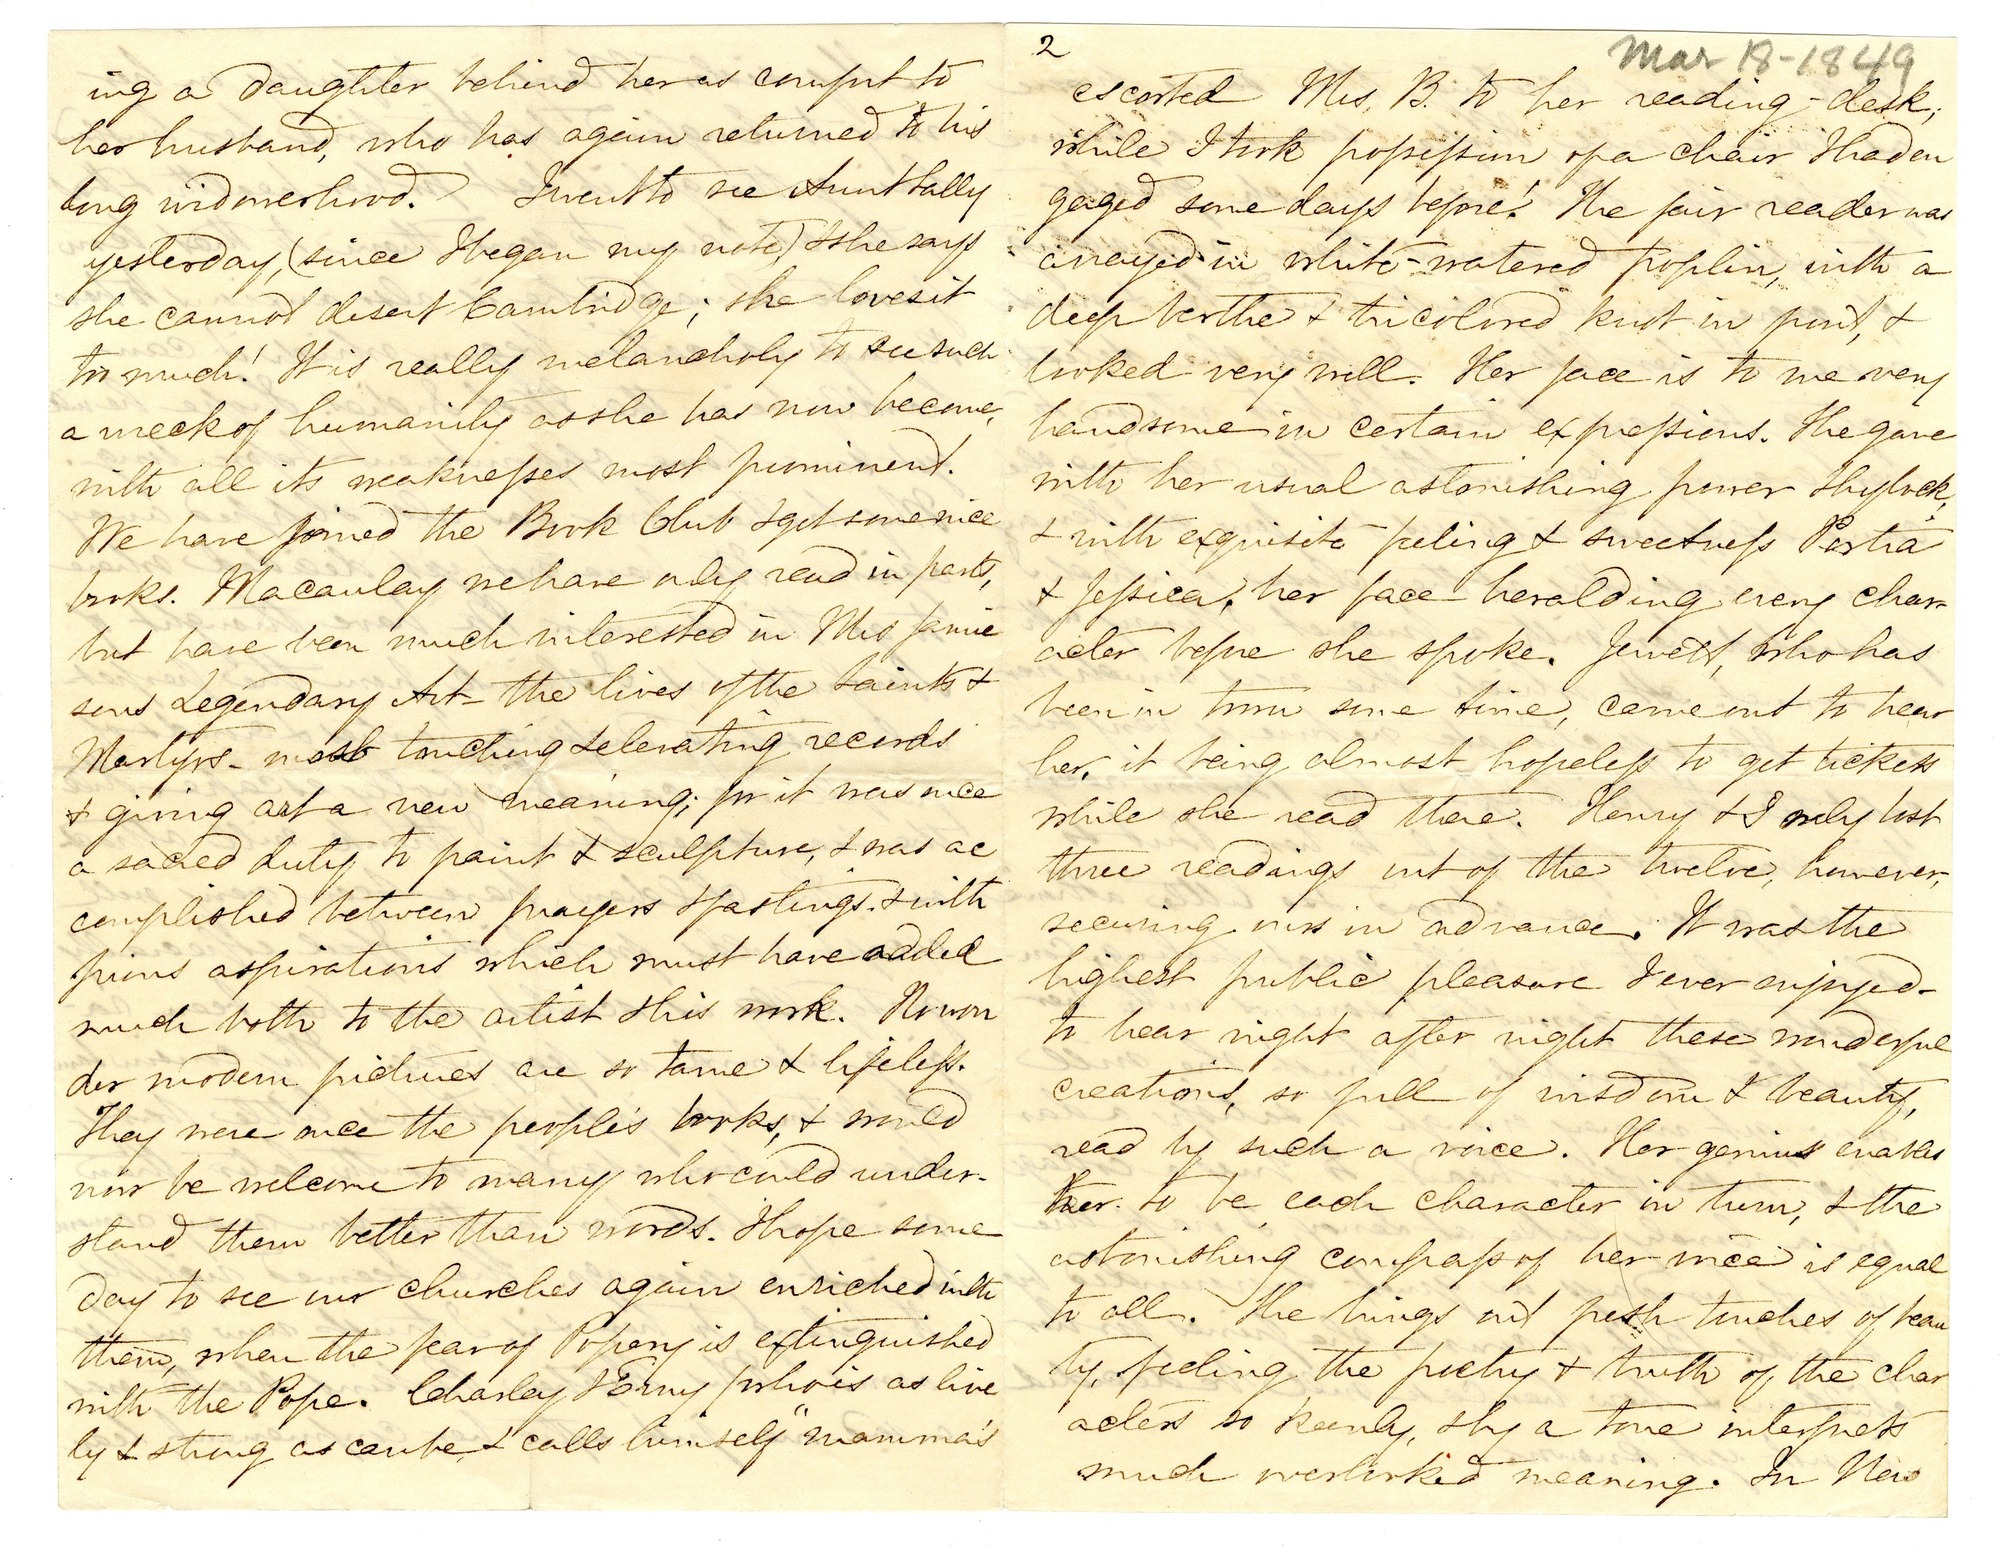 ing a daughter behind her as comfort to
her husband, who has again returned to his
long widowerhood. I went to see Aunt Sally
yesterday, (since I began my note) & she says
she cannot desert Cambridge; she loves it
too much! It is really melancholy to see such
a wreck of humanity as she has now become,
with all its weaknesses most prominent.
We have joined the Book Club & get some nice
books. Macaulay we have only read in parts,
but have been much interested in Mrs Jamie
sons Legendary Art - the lives of the Saints &
Martyrs - most touching & elevating records
& giving art a new meaning; for it was once
a sacred duty to paint & sculpture, & was ac
complished between prayers & fastings. & with
pious aspirations which must have added
much both to the artist & his work. No won
der modern pictures are so tame & lifeless.
They were once the people's books, & would
now be welcome to many who could under-
stand them better than words. I hope some
day to see our churches again enriched with
them, when the fear of Popery is extinguished
with the Pope. Charley & Erny (who is as live
ly & strong as can be, & calls himself "mamma's
2
Mar 18-1849
escorted Mrs. B. to her reading-desk,
while I took possession of a chair I had en
gaged some days before! The fair reader was
arrayed in white-watered poplin, with a
deep berthe & tricolored knot in front, &
looked very well. Her face is to me very
handsome in certain expressions. She gave
with her usual astonishing power Shylock,
& with exquisite feeling & sweetness Portia
& Jessica, her face heralding every char-
acter before she spoke. Jewett, who has
been in town some time, came out to hear
her, it being almost hopeless to get tickets
while she read there. Henry & I only lost
three readings out of the twelve, however,
securing ours in advance. It was the
highest public pleasure I ever enjoyed-
to hear night after night these wonderful
creations, so full of wisdom & beauty,
read by such a voice. Her genius enables
her to be each character in turn, & the
astonishing compass of her voice is equal
to all. She brings out fresh touches of beau
ty, feeling the poetry & truth of the char
acters so keenly, & by a tone interprets
much overlooked meaning. In New